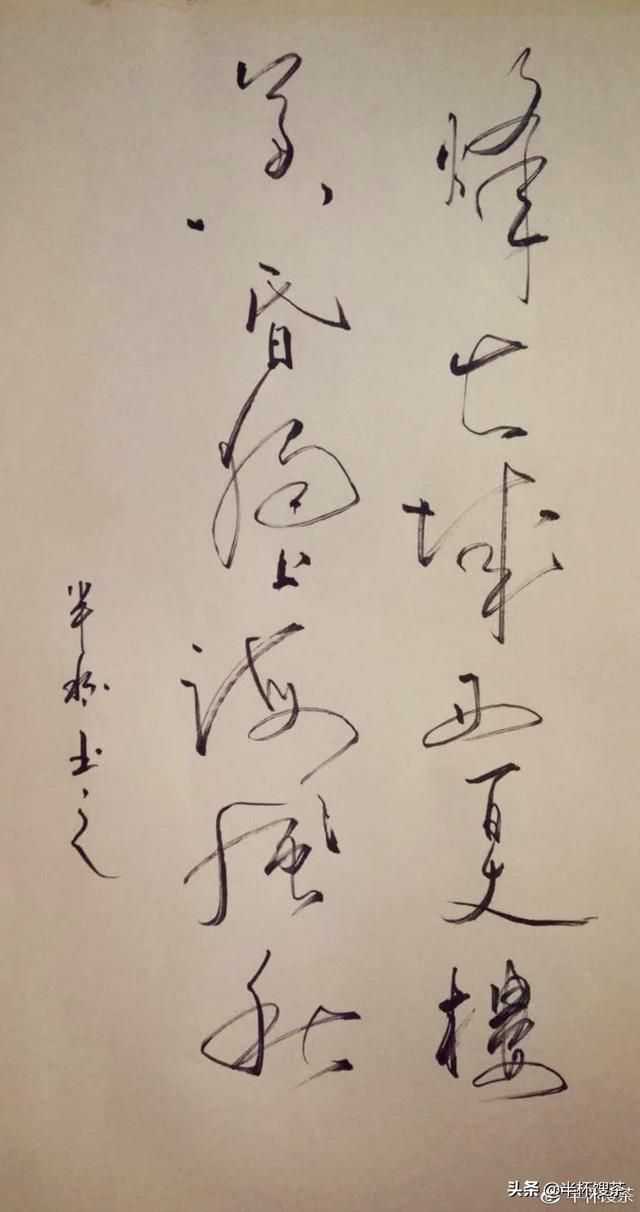 烽火城西百尺楼
黄昏独上海风秋
半杯书之
头条 @半杯馊茶
@半杯馊茶